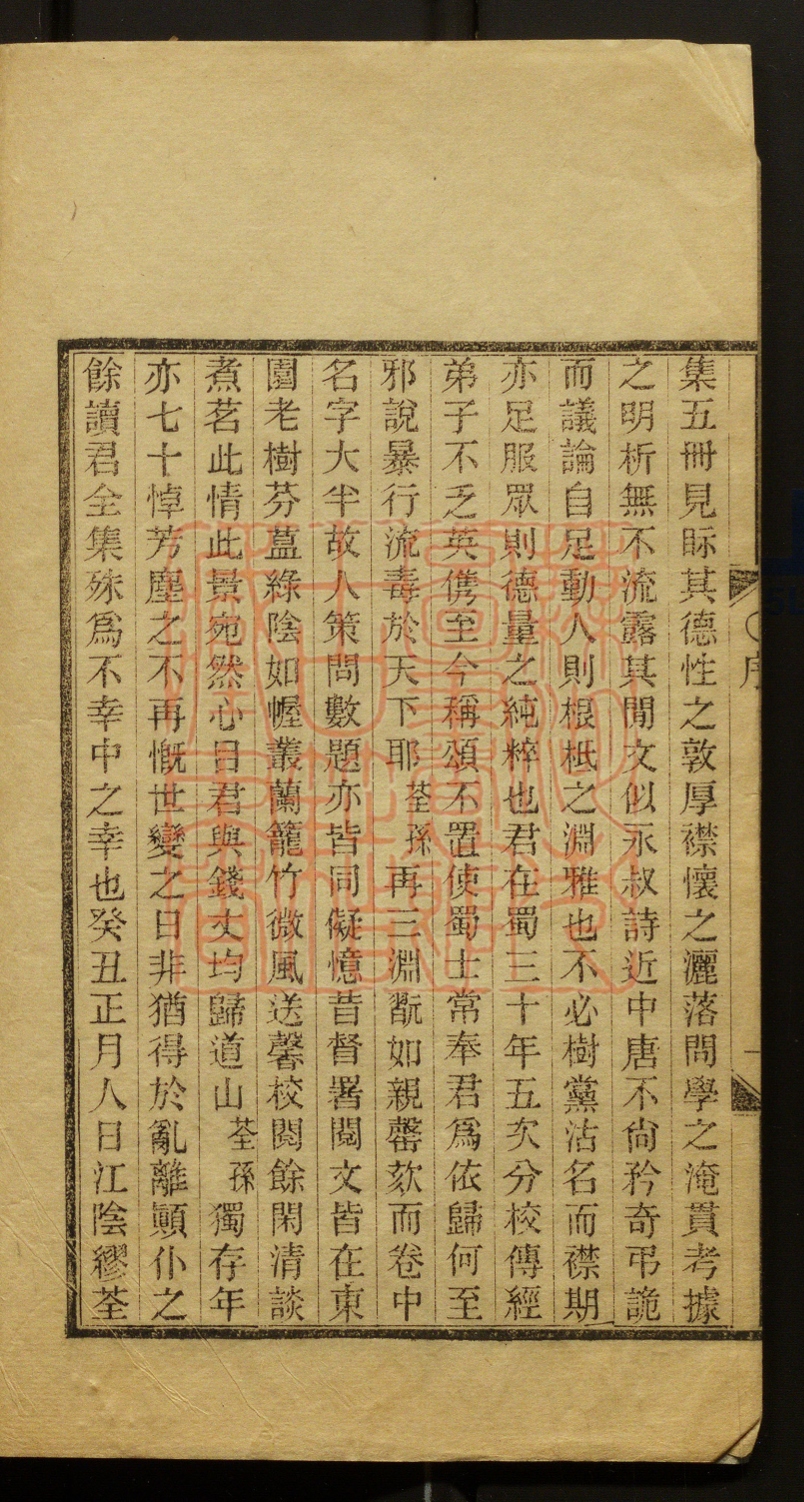 集五冊見眎其德性之敦厚襟懷之灑落問學之淹貫考據
之明析無不流露其閒文似永叔詩近中唐不尙矜奇弔詭
而議論自足動人則根柢之淵雅也不必樹黨沽名而襟期
亦足服眾則德量之純粹也君在蜀三十年五次分校傳經
弟子不乏英儁至今稱頌不置使蜀士常奉君爲依歸何至
邪說暴行流毒於天下耶荃孫再三淵翫如親罄欬而卷中
名字大半故人策問數題亦皆同儗憶昔督署閱文皆在東
園老樹芬蒀綠陰如幄叢蘭籠竹微風送馨校閱餘閑清談
煮茗此情此景宛然心目君與錢丈均歸道山荃孫獨存年
亦七十悼芳塵之不再慨世變之日非猶得於亂離顚仆之
餘讀君全集殊爲不幸中之幸也癸丑正月人日江陰繆荃
序
一